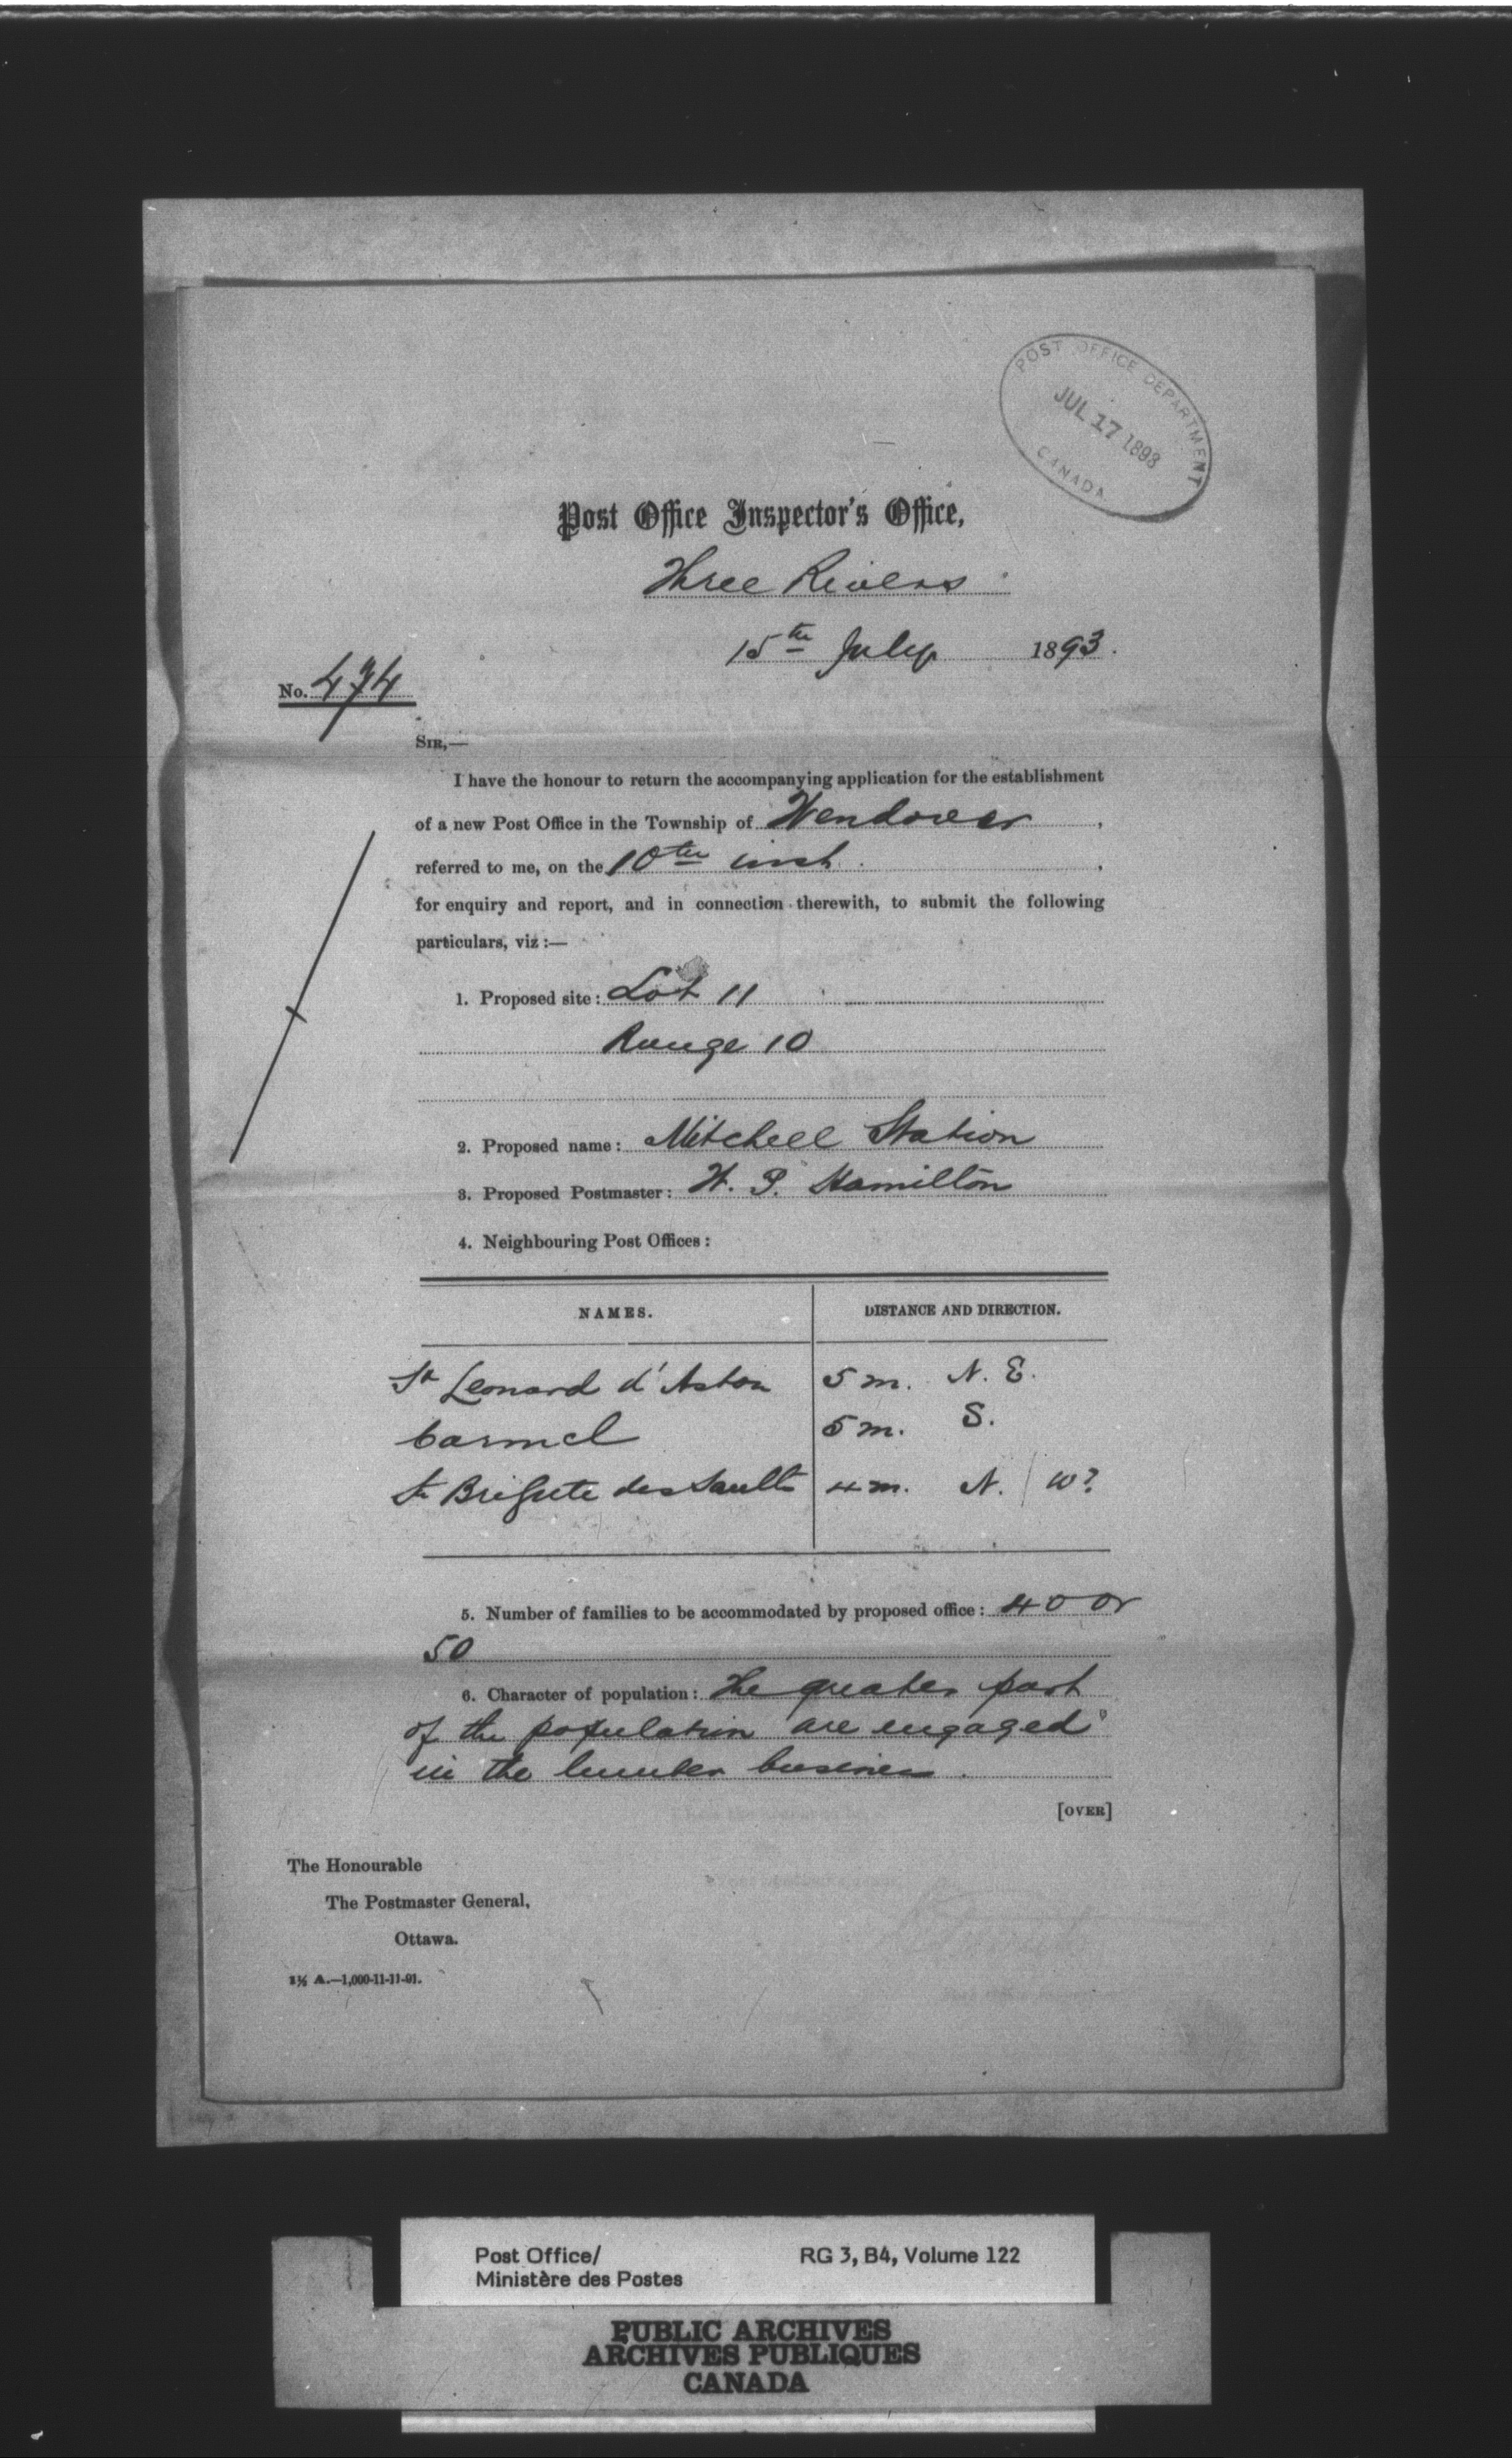 POST OFFICE DEPARTMENT
JUL 17 1893
CANADA
Post Office Inspector's Office,
Three Rivers
15th July 1893.
No. 474
SIR,—
I have the honour to return the accompanying application for the establishment
of a new Post Office in the Township of Wendover,
referred to me, on the 10th inst.,
for enquiry and report, and in connection therewith, to submit the following
particulars, viz :—
1. Proposed site: Lot 11
Range 10
2. Proposed name: Mitchell Station
3. Proposed Postmaster: W. P. Hamilton
4. Neighbouring Post Offices:
NAMES. DISTANCE AND DIRECTION.
St Leonard d'Aston 5 m. N. E.
Carmel 5 m. S.
St Brigite des Saults 4 m. N. / W?
5. Number of families to be accommodated by proposed office: 40 or
50
6. Character of population: The greater part
of the population are engaged
in the lumber business.
[OVER]
The Honourable
The Postmaster General,
Ottawa.
A.—1,000-11-11-91.
Post Office/ RG 3, B4, Volume 122
Ministère des Postes
PUBLIC ARCHIVES
ARCHIVES PUBLIQUES
CANADA